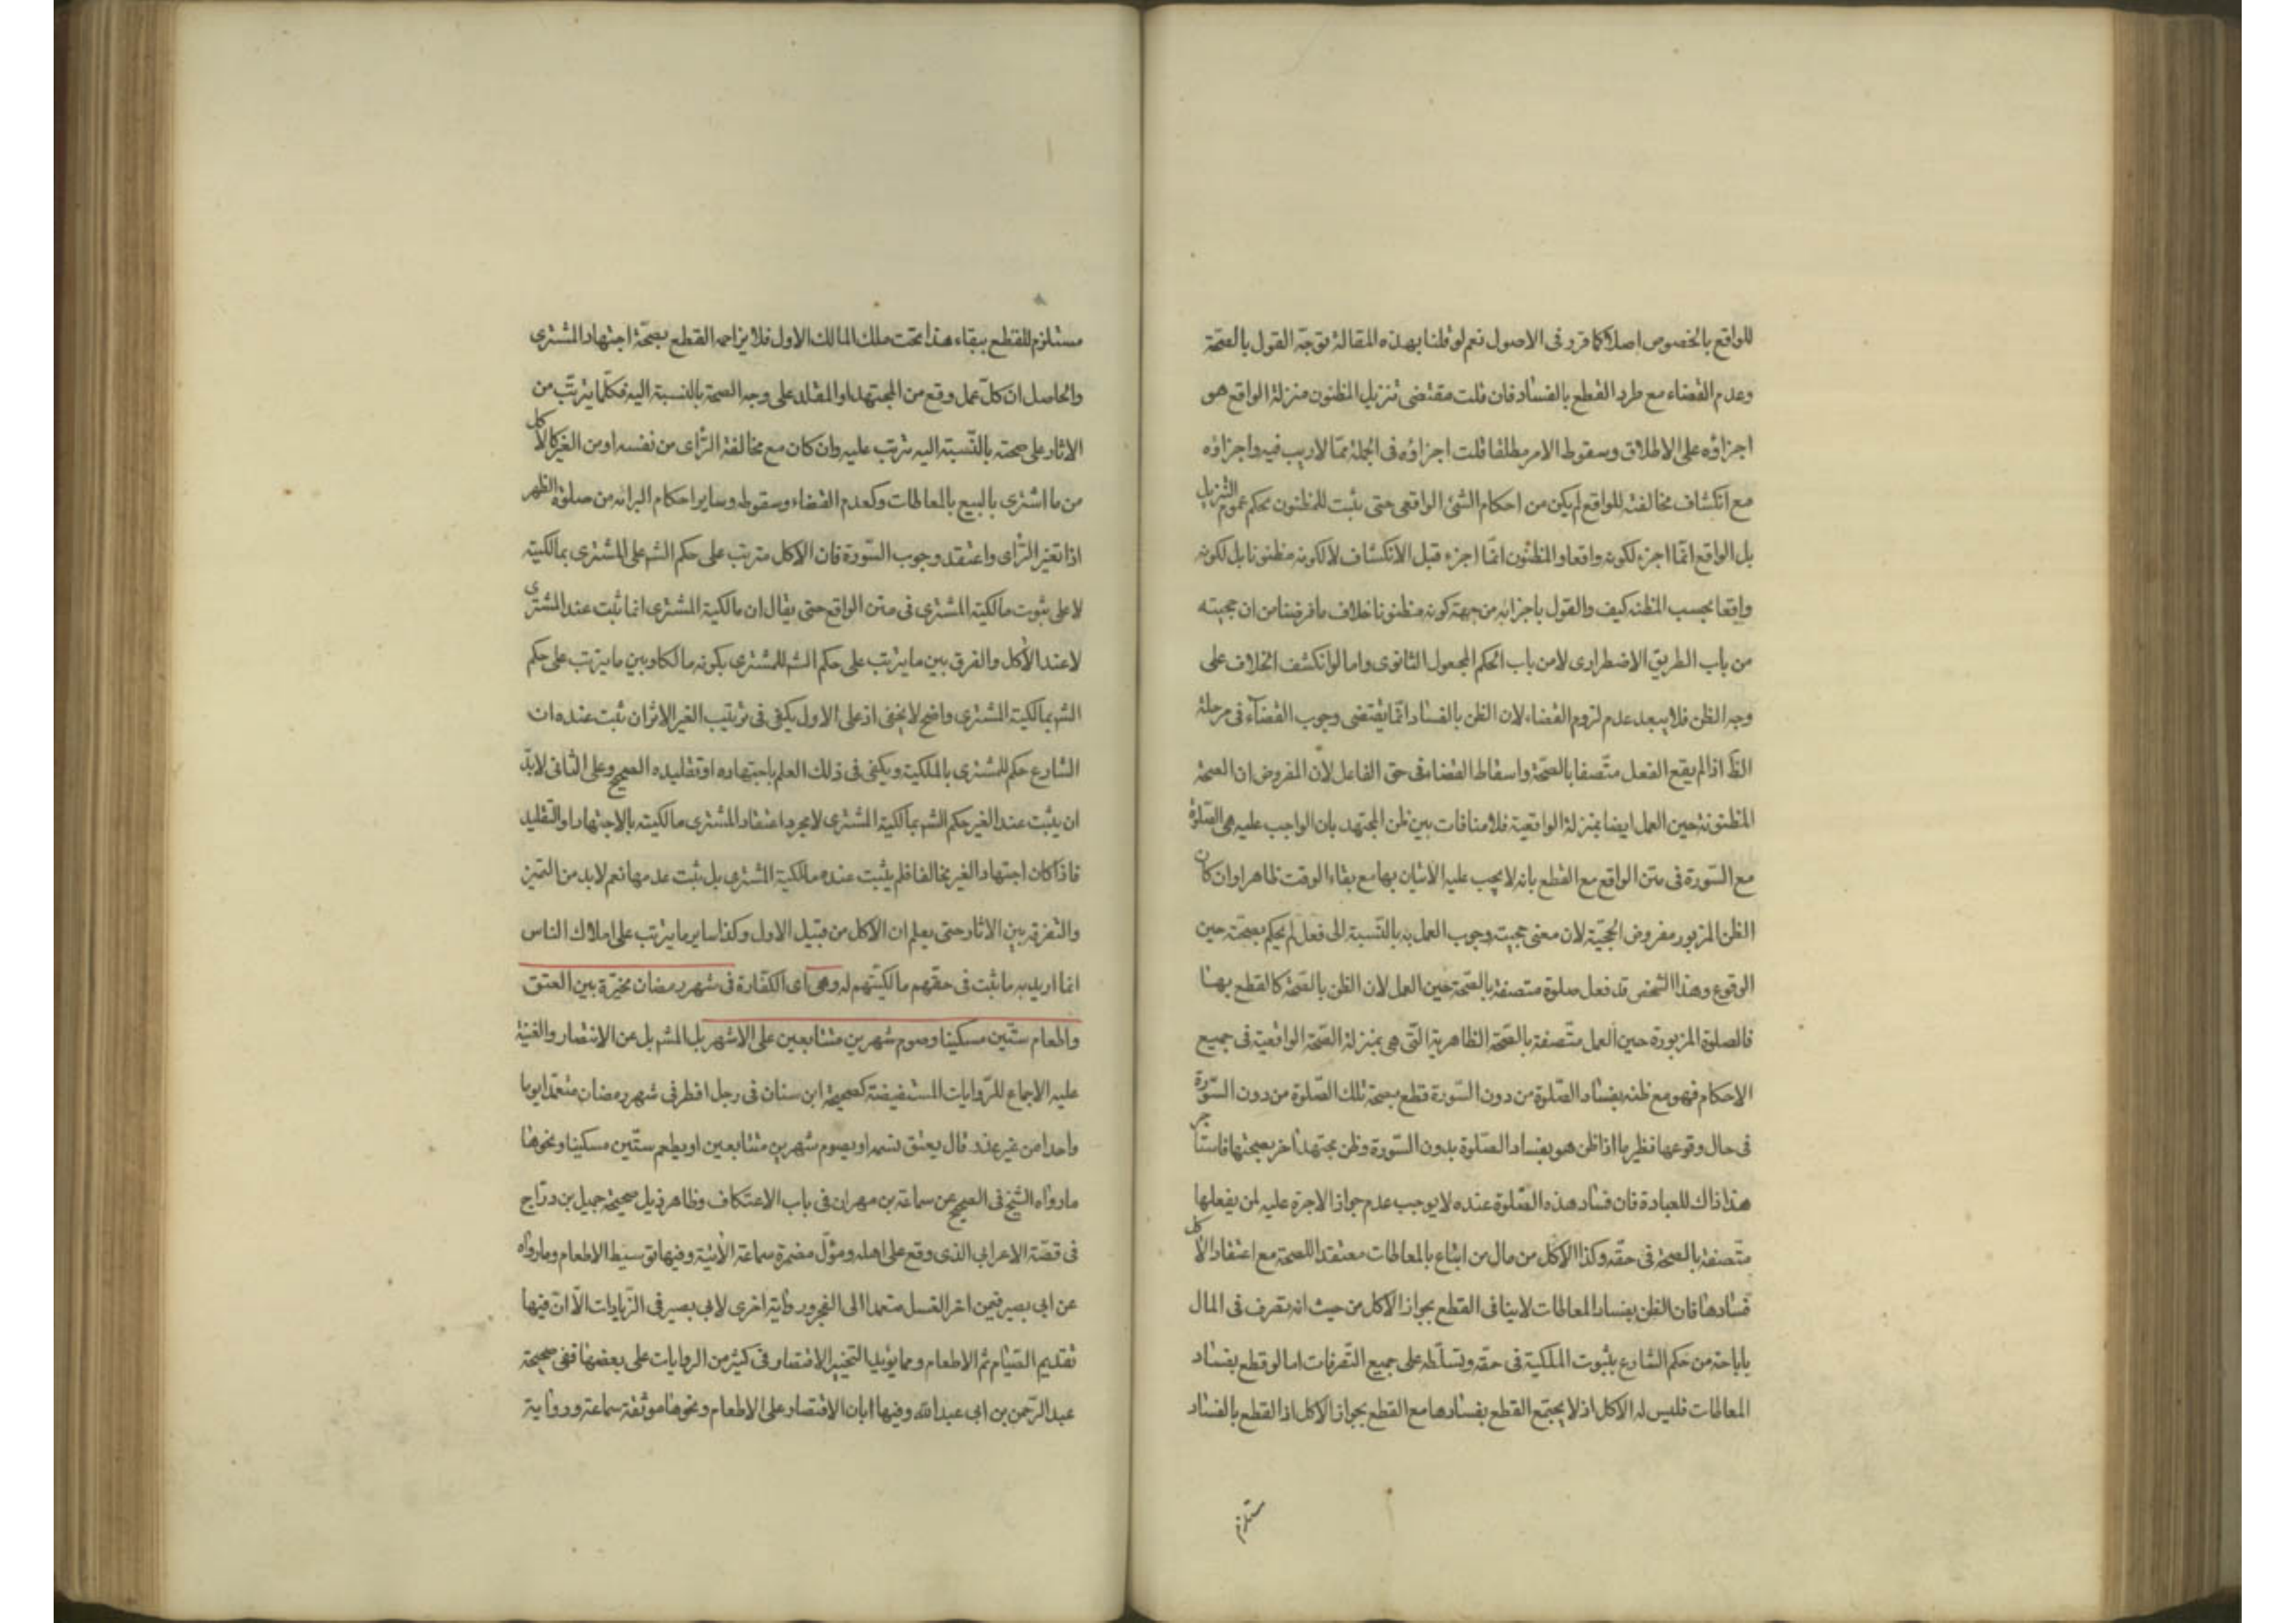 للواقع بالخصوص اصلا كما قرر فى الاصول نعم لو قلنا بهذه المقالة توجّه القول بالصحّة
وعدم القضاء مع طرد القطع بالفساد فان قلت مقتضى تنزيل المظنون منزلة الواقع هو
اجزاؤه على الاطلاق وسقوط الامر مطلقا قلت اجزاؤه فى الجملة ممّا لا ريب فيه واجزاؤه
مع انكشاف مخالفته للواقع لم يكن من احكام الشئ الواقعى حتى يثبت للمظنون بحكم عموم التنزيل
بل الواقع انّما اجزء لكونه واقعا والمظنون انّما اجزء قبل الانكشاف لا لكونه مظنونا بل لكونه
واقعا بحسب المظنه كيف والقول باجزائه من جهة كونه مظنونا خلاف ما فرضنا من ان حجيته
من باب الطريق الاضطرارى لا من باب الحكم المجعول الثانوى واما لو انكشف الخلاف على
وجه الظن فلا يبعد عدم لزوم القضاء لان الظن بالفساد انّما يقتضى وجوب القضآء فى مرحلة
الظّ اذا لم يقع الفعل متّصفا بالصحّة واسقاط القضاء فى حق الفاعل لان المفروض ان الصحة
المظنونة حين العمل ايضا بمنزلة الواقعية فلا منافات بين ظن المجتهد بان الواجب عليه هى الصّلوة
مع السّورة فى متن الواقع مع القطع بانه لا يجب عليه الاتيان بها مع بقاء الوقت ظاهرا وان كان
الظن المزبور مفروض الحجّيّة لان معنى حجيته وجوب العمل به بالنّسبة الى فعل لم يحكم بصحّته حين
الوقوع وهذا الشخص قد فعل صلوة متصفة بالصّحة حين العمل لان الظن بالصّحة كالقطع بها
فالصلوة المزبورة حين العمل متّصفة بالصّحة الظاهرية التّى هى بمنزلة الصّحة الواقعية فى جميع
الاحكام فهو مع ظنه بفساد الصّلوة من دون السّورة قطع بصحة تلك الصّلوة من دون السّورة
فى حال وقوعها نظير ما اذا ظن هو بفساد الصّلوة بدون السّورة وظن مجتهد اخر بصحتها فاستاجر
هذا ذاك للعبادة فان فساد هذه الصّلوة عنده لا يوجب عدم جواز الاجرة عليه لمن يفعلها
متّصفة بالصحة فى حقّه وكذا الاكل من مال من ابتاع بالمعاطات معتقدا للصحة مع اعتقاد الاكل
فسادها فان الظن بفساد المعاطات لا ينافى القطع بجواز الاكل من حيث انه تصرف فى المال
باباحة من حكم الشارع بثبوت الملكية فى حقه وتسلّطه على جميع التّصرفات اما لو قطع بفساد
المعاطات فليس له الاكل اذ لا يجتمع القطع بفسادها مع القطع بجواز الاكل اذ القطع بالفساد
مستلزم
مستلزم للقطع ببقاء هذا تحت ملك المالك الاول فلا يزاحمه القطع بصحّة اجتهاد المشترى
والحاصل ان كلّ عمل وقع من المجتهد او المقلد على وجه الصحة بالنسبة اليه فكلّما يترتّب من
الاثار على صحته بالنّسبة اليه يترتب عليه وان كان مع مخالفة الرّاى من نفسه او من الغير كالاكل
من ما اشترى بالبيع بالمعاطات وكعدم القضاء وسقوطه وساير احكام البرائه من صلوة الظهر
اذا تغير الرّاى واعتقد وجوب السّورة فان الاكل مترتب على حكم الشه على المشترى بمالكيته
لا على ثبوت مالكية المشترى فى متن الواقع حتى يقال ان مالكية المشترى انما ثبت عند المشترى
لا عند الاكل والفرق بين ما يترتب على حكم الشه للمشترى بكونه مالكا وبين ما يترتب على حكم
الشه بمالكية المشترى واضح لا يخفى اذ على الاول يكفى فى ترتيب الغير الاثر ان ثبت عنده ان
الشارع حكم للمشترى بالملكية ويكفى فى ذلك العلم باجتهاده او تقليده الصحيح وعلى الثانى لابدّ
ان يثبت عند الغير حكم الشه بمالكية المشترى لا بمجرد اعتقاد المشترى مالكيته بالاجتهاد او التّقليد
فاذا كان اجتهاد الغير مخالفا فلم يثبت عنده مالكية المشترى بل ثبت عدمها نعم لابد من التميز
والتفرقه بين الاثار حتى يعلم ان الاكل من قبيل الاول وكذا ساير ما يترتب على املاك الناس
انما اريد به ما ثبت فى حقّهم مالكيّتهم له وهى اى الكفّارة فى شهر رمضان مخيّرة بين العتق
واطعام ستّين مسكينا وصوم شهرين متتابعين على الاشهر بل المشه بل عن الانتصار والغنية
عليه الاجماع للرّوايات المستفيضة كصحيحة ابن سنان فى رجل افطر فى شهر رمضان متعمّدا يوما
واحدا من غير عذر قال يعتق نسمه او يصوم شهرين متتابعين او يطعم ستّين مسكينا ونحوها
ما رواه الشيخ فى الصحيح عن سماعة بن مهران فى باب الاعتكاف وظاهر ذيل صحيحة جميل بن درّاج
فى قصّة الاعرابى الذى وقع على اهله ومؤلّ مضمرة سماعة الاتية وفيها توسيط الاطعام وما رواه
عن ابى بصير فيمن اخر الغسل متعمدا الى الفجر ورواية اخرى لابى بصير فى الزّيادات الّا انّ فيها
تقديم الصّيام ثم الاطعام ومما يؤيد التخيير الاقتصار فى كثير من الروايات على بعضها ففى صحيحة
عبد الرّحمن بن ابى عبد الله وفيها ابان الاقتصار على الاطعام ونحوها موثقة سماعة ورواية